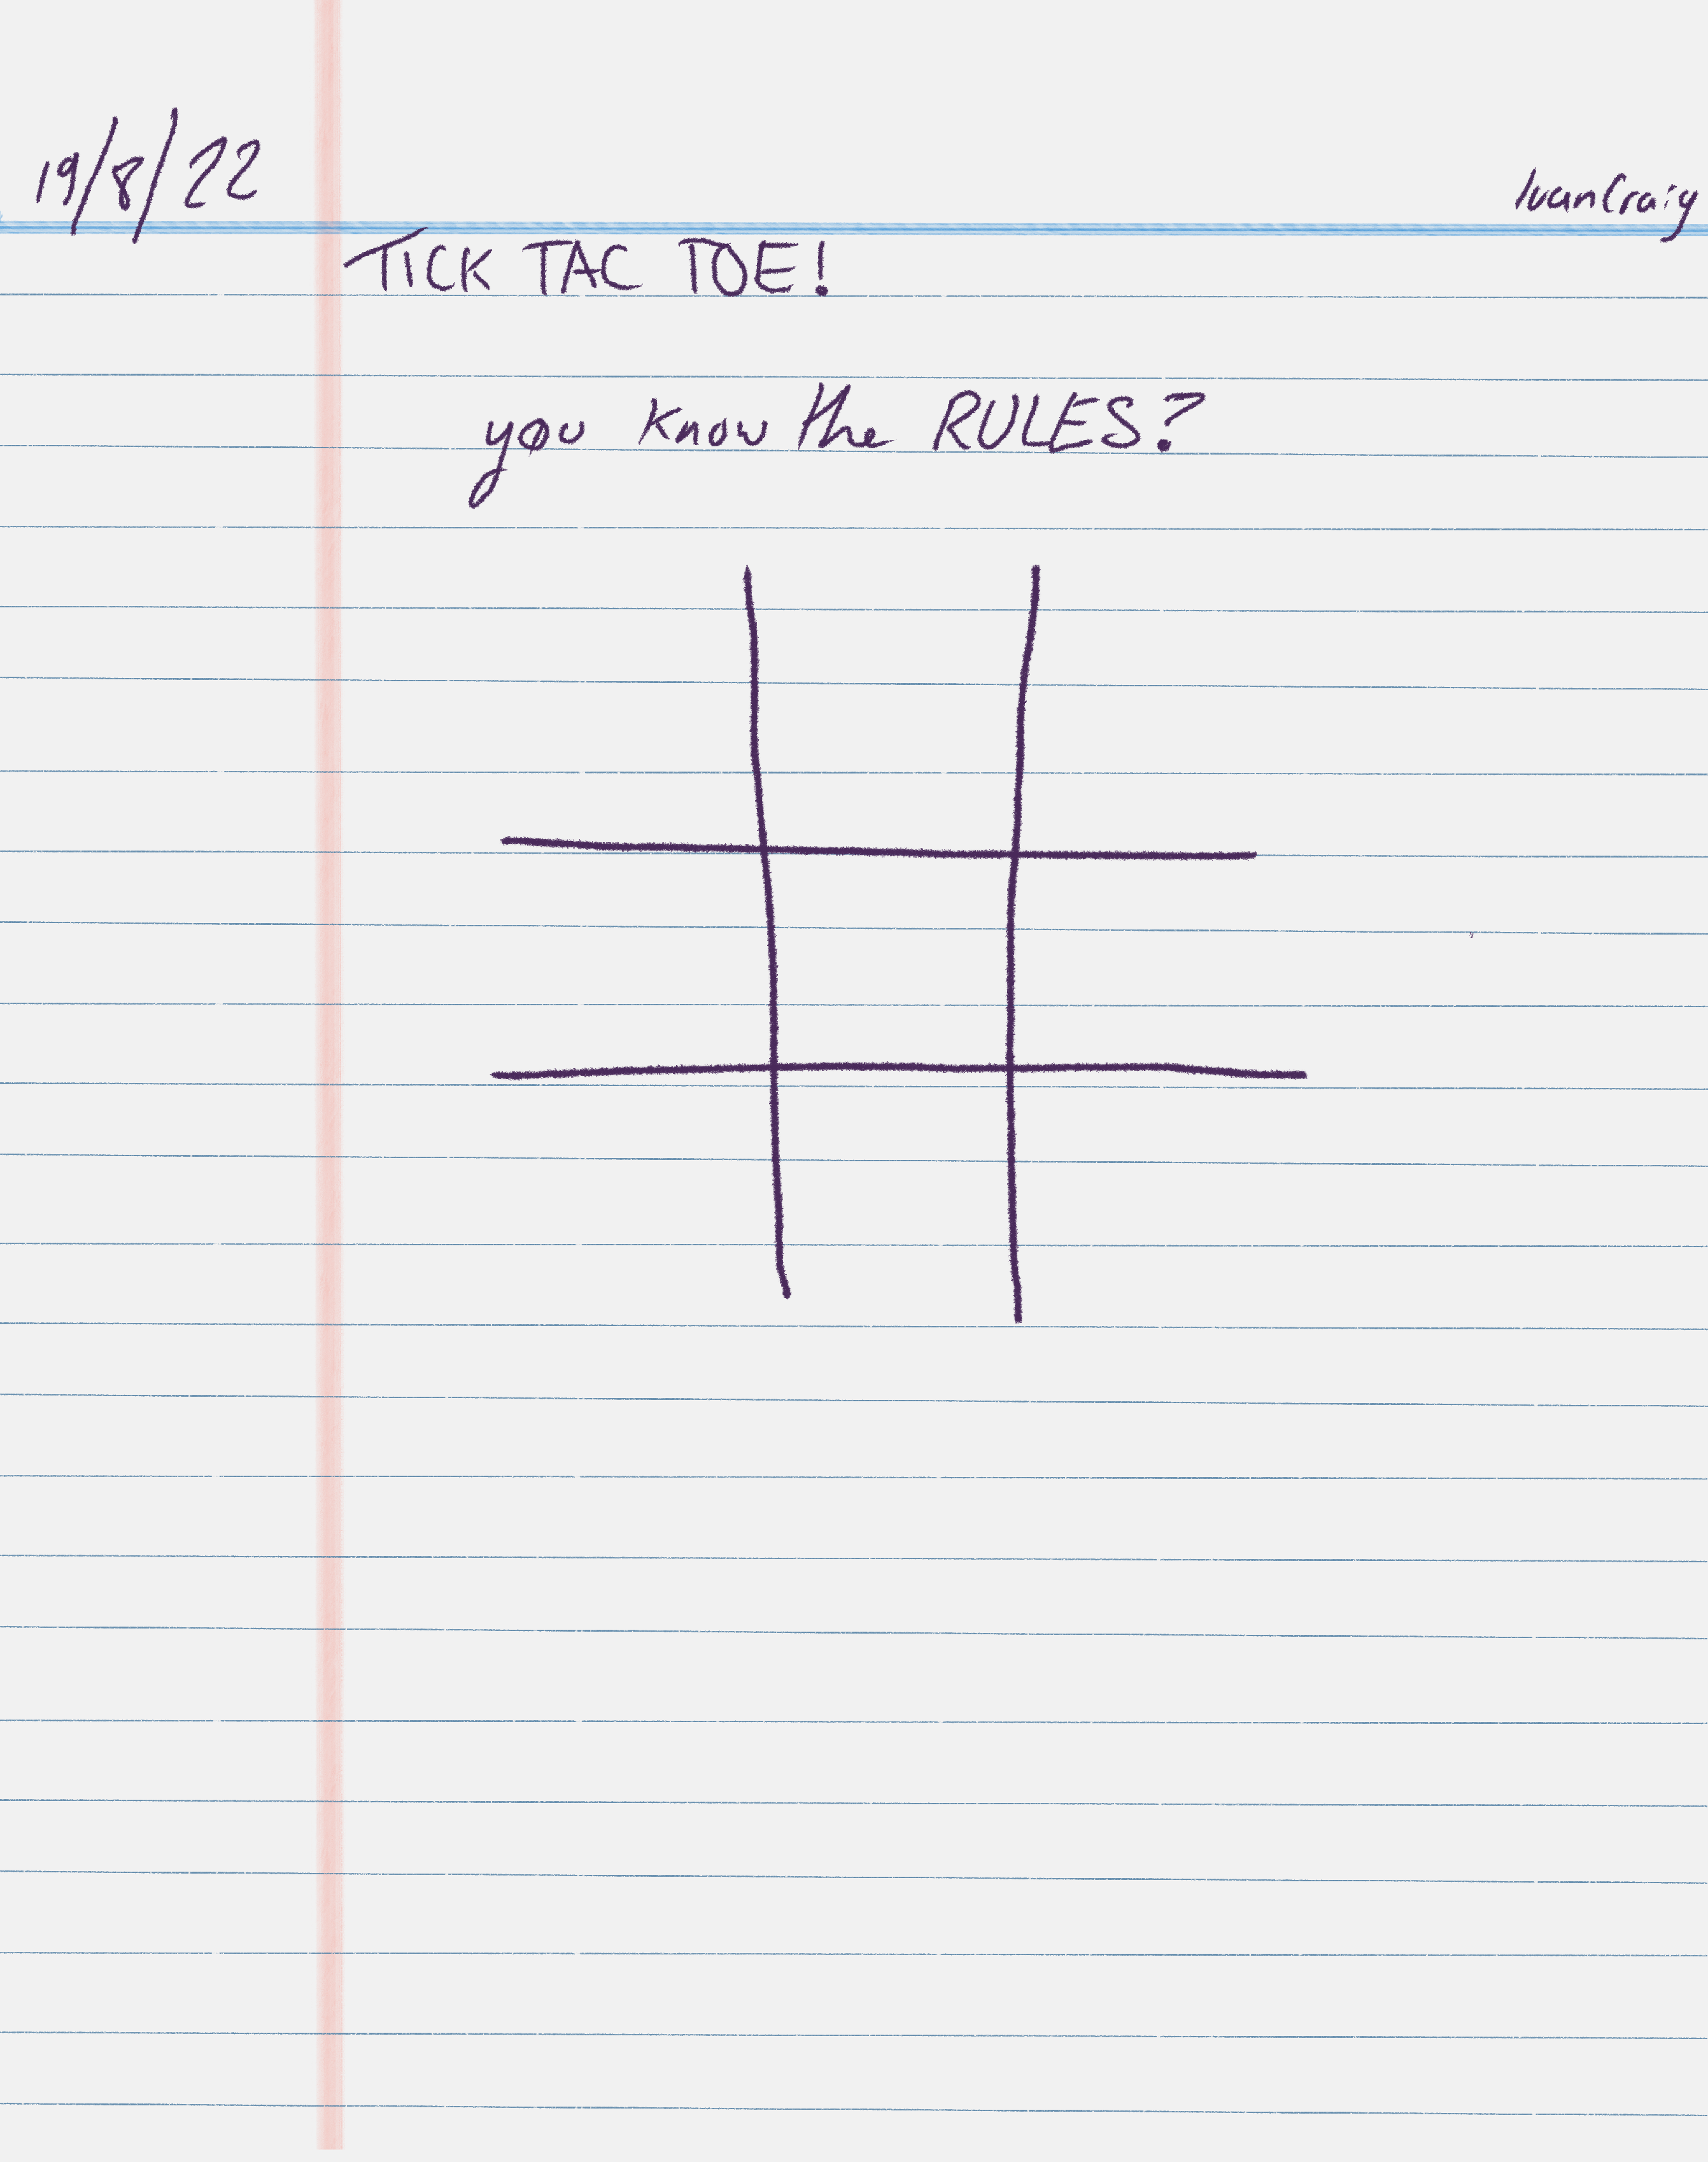 19/8/22
IvanCraig
TICK TAC TOE!
you know the RULES?